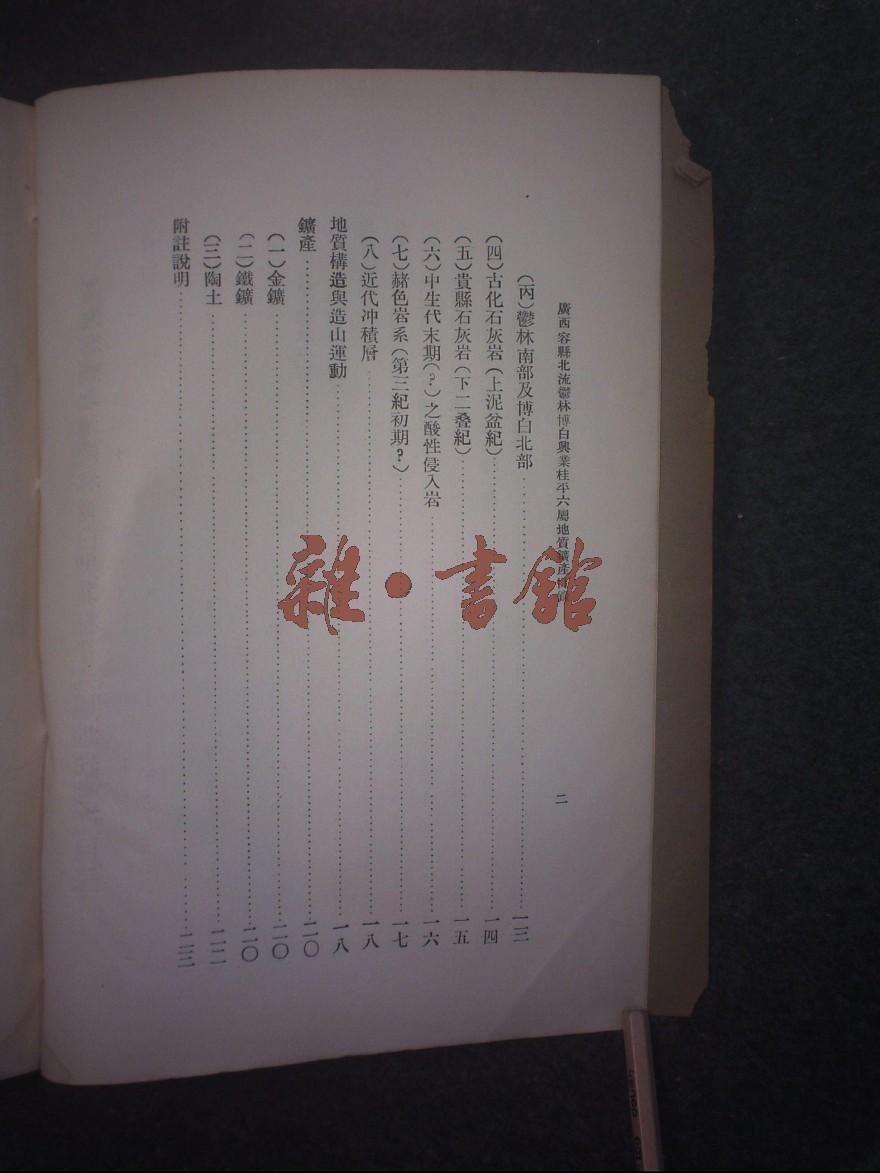 廣西容縣北流鬱林博白興業桂平六屬地質鑛產
二
(丙)鬱林南部及博白北部……一三
(四)古化石灰岩(上泥盆紀)……一四
(五)貴縣石灰岩(下二叠紀)……一五
(六)中生代末期(?)之酸性侵入岩……一六
(七)赭色岩系(第三紀初期?)……一七
(八)近代冲積層……一八
地質構造與造山運動……一八
鑛產……二〇
(一)金鑛……二〇
(二)鐵鑛……二〇
(三)陶土……二二
附註說明……二三
雜•書館